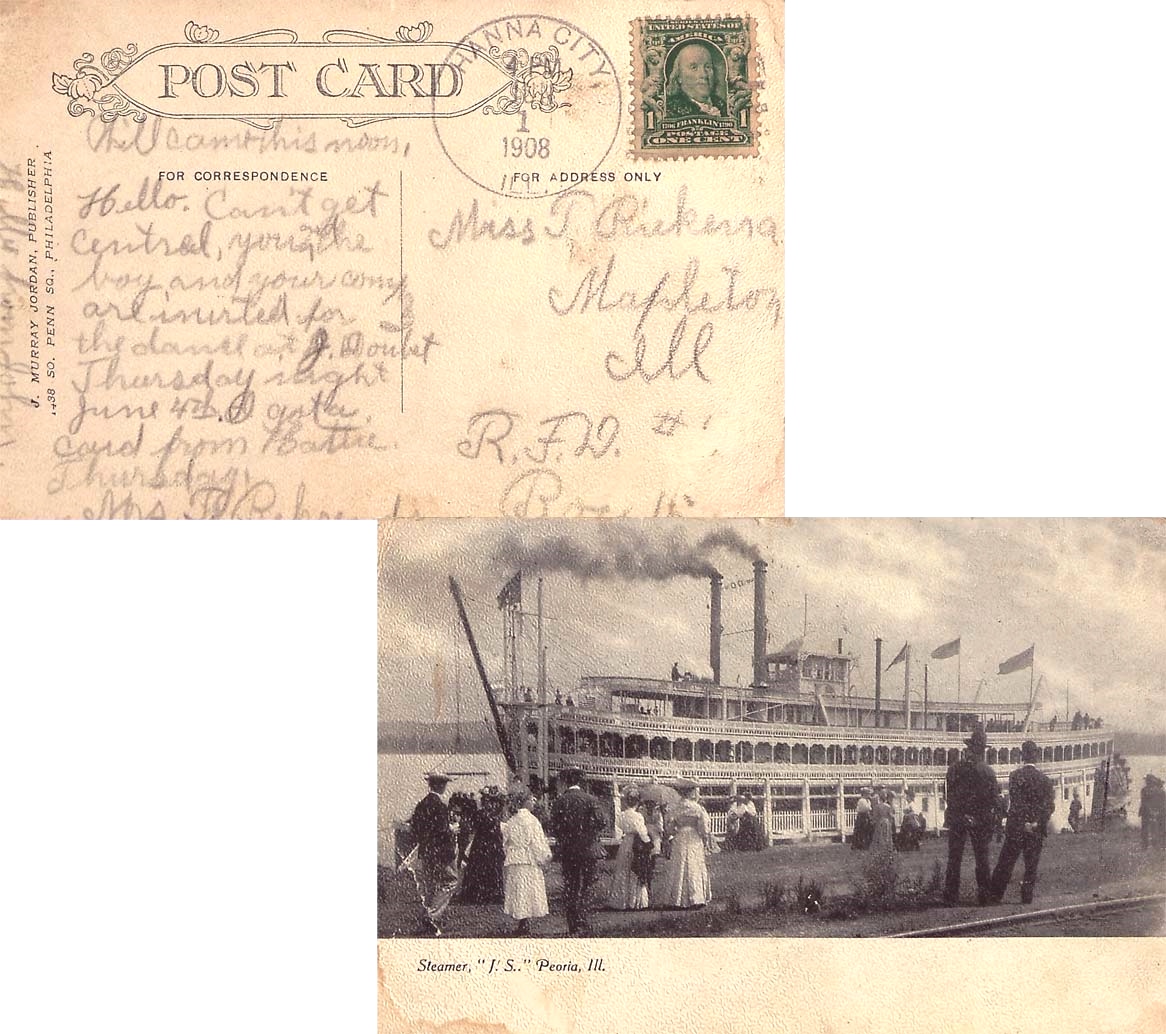 POST CARD
HANNA CITY,
PM
1
1908
ILL.
UNITED STATES OF
AMERICA
1 1
FRANKLIN
POSTAGE
ONE CENT
came this noon,
FOR CORRESPONDENCE
FOR ADDRESS ONLY
J. MURRAY JORDAN, PUBLISHER
1438 SO. PENN SQ., PHILADELPHIA
Hello. Can't get
Central, you, the
boy and your comp
are invited for
the dance at J. Doubet
Thursday night
June 4th. I got a
card from Hattie
Thursday.
Mrs.
Miss T
Mapleton
Ill
R.F.D. #
Box
Steamer, "J. S.." Peoria, Ill.